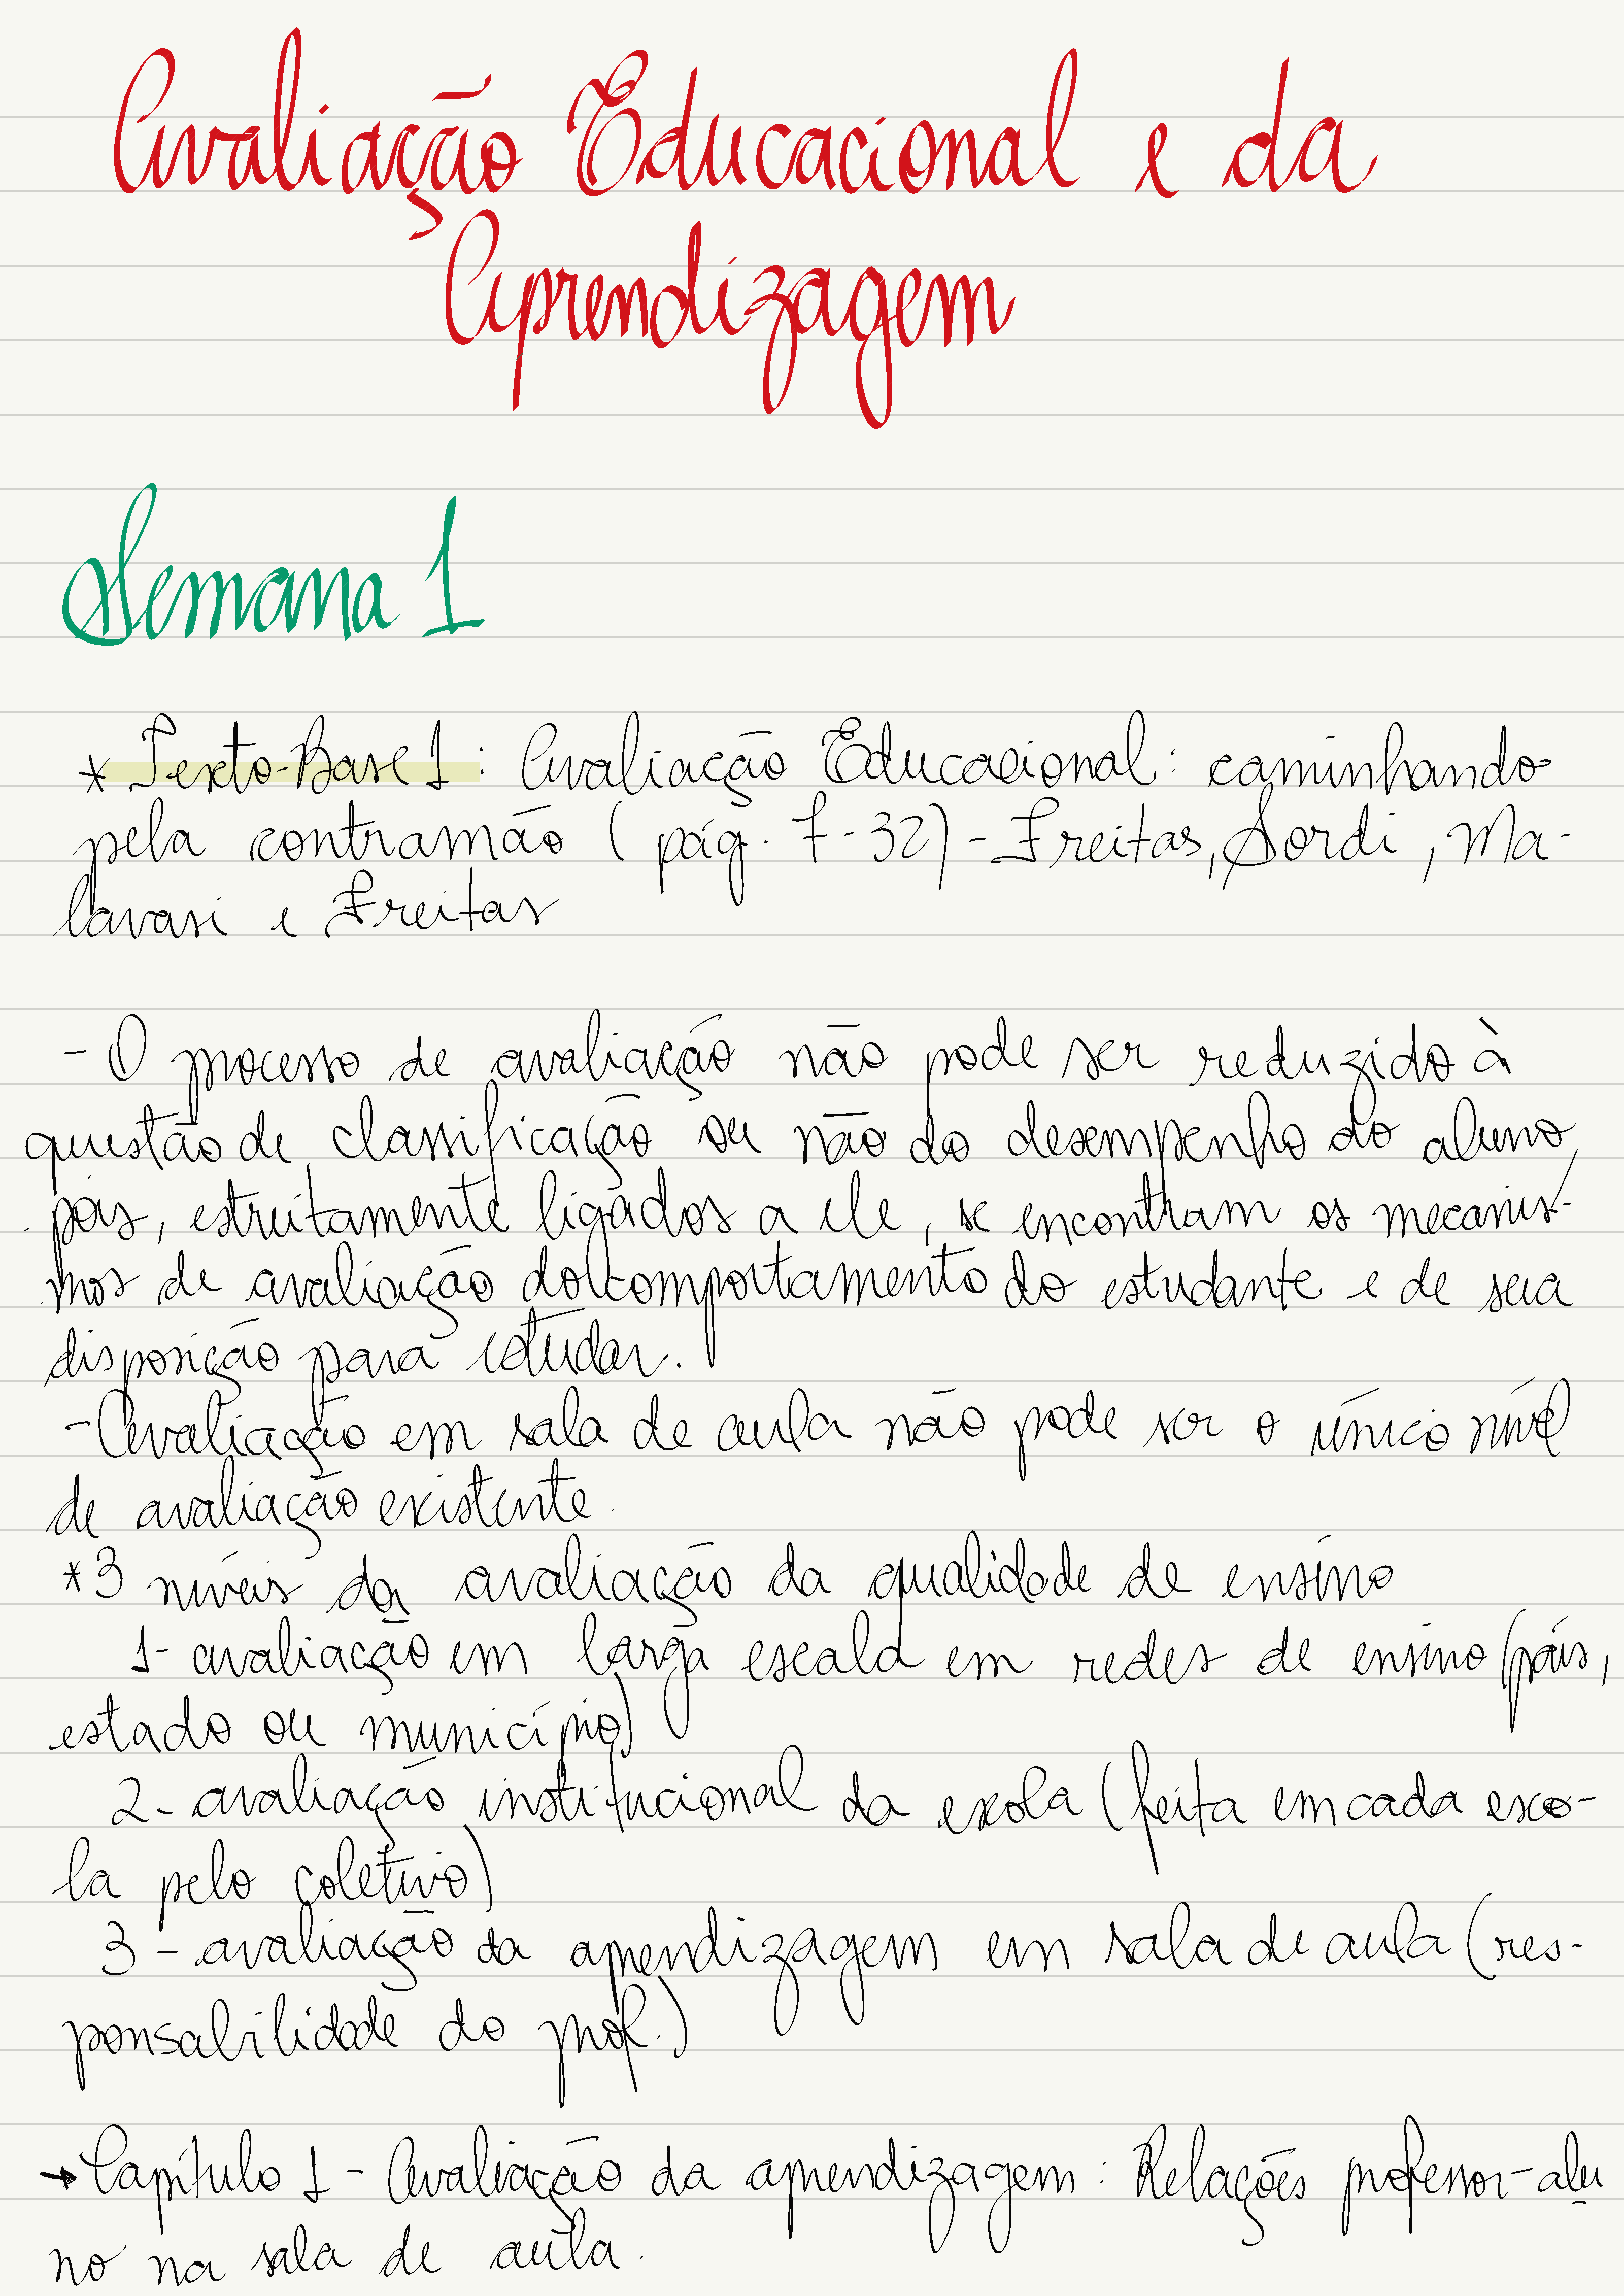 Avaliação Educacional e da
Aprendizagem
Semana 1
* Texto-Base 1: Avaliação Educacional: caminhando
pela contramão (pág. 7-32) - Freitas, Sordi, Ma-
lavasi e Freitas
- O processo de avaliação não pode ser reduzido à
questão de classificação ou não do desempenho do aluno,
pois, estreitamente ligados a ele, se encontram os mecanis-
mos de avaliação do comportamento do estudante e de sua
disposição para estudar.
- Avaliação em sala de aula não pode ser o único nível
de avaliação existente.
*3 níveis da avaliação da qualidade de ensino
1- avaliação em larga escala em redes de ensino (país,
estado ou município)
2- avaliação institucional da escola (feita em cada esco-
la pelo coletivo)
3 - avaliação da aprendizagem em sala de aula (res-
ponsabilidade do prof.)
→ Capítulo 1 - Avaliação da aprendizagem: Relações professor-alu
no na sala de aula.